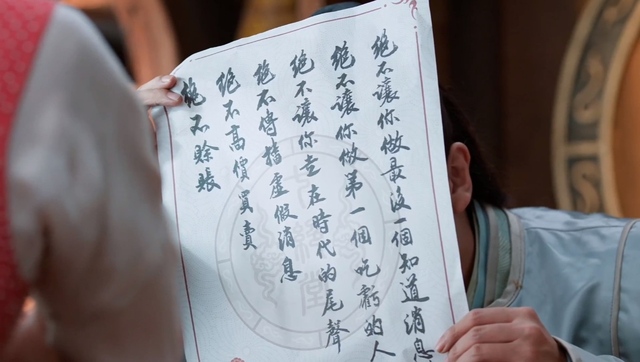 絶不讓你做最後一個知道消息
絶不讓你做第一個吃虧的人
絶不讓你走在時代的尾聲
絶不傳播虛假消息
絶不高價買賣
絶不賒賬